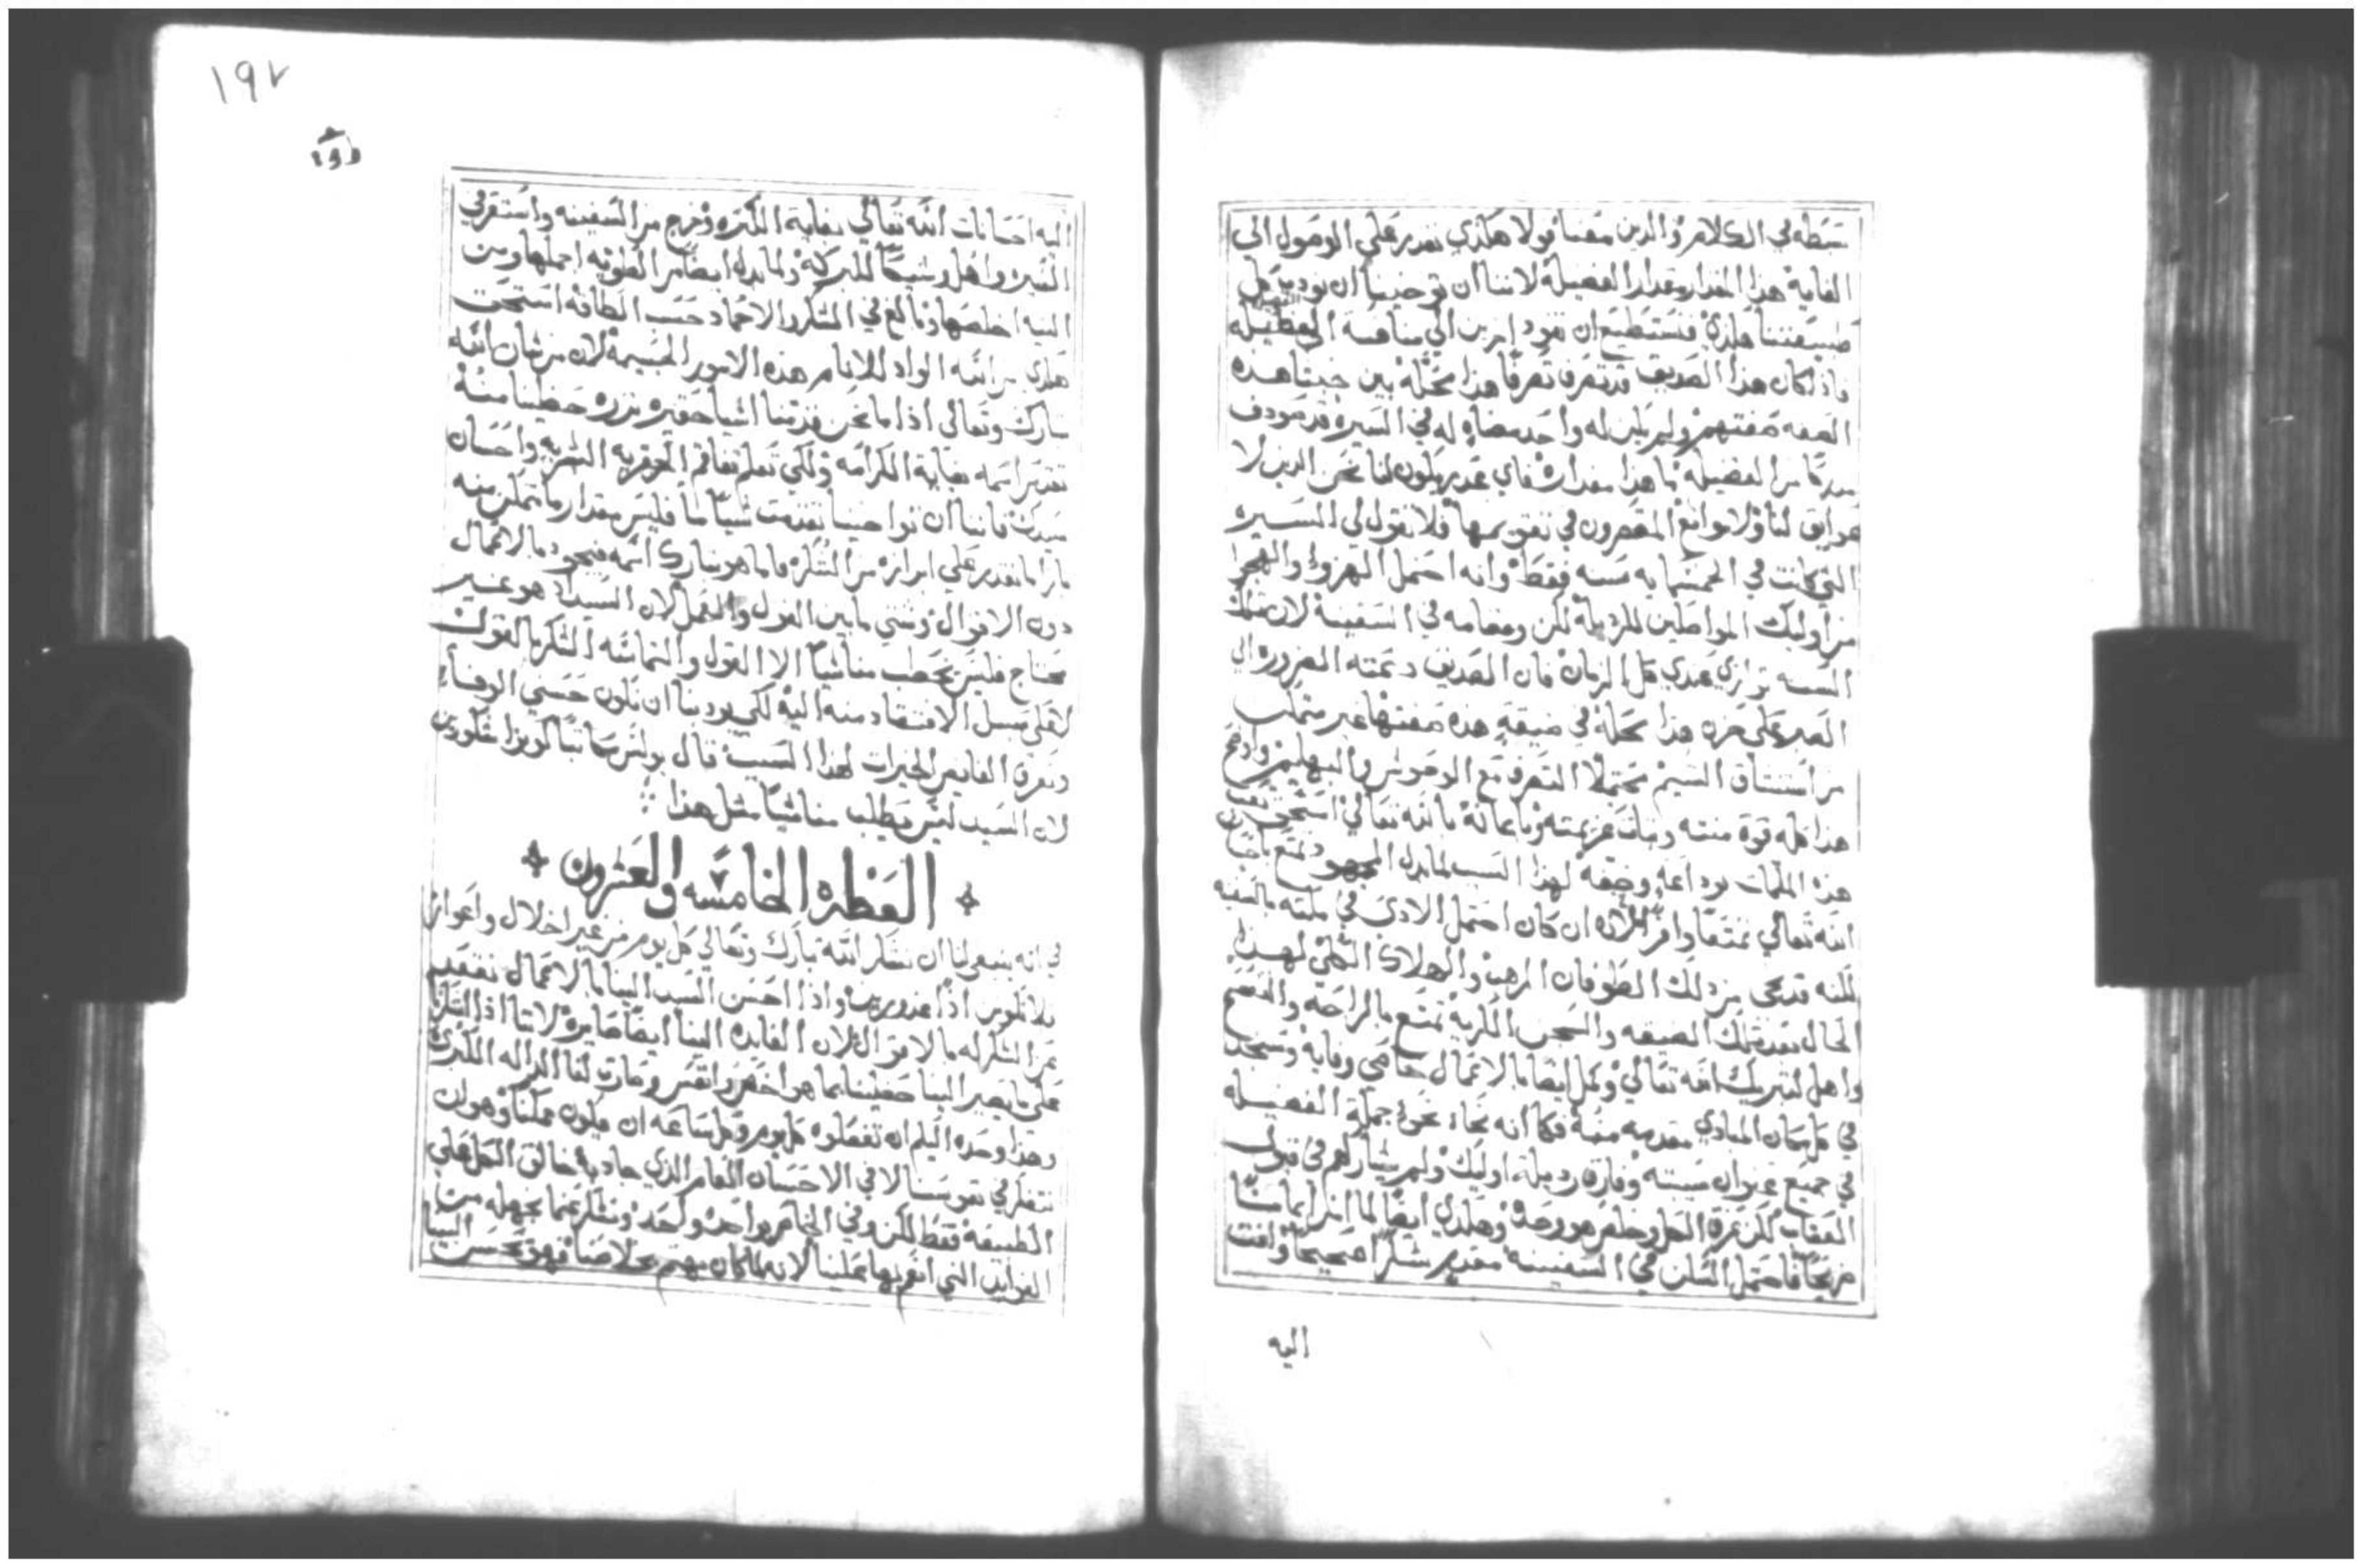 بسطه في الكلام والدين معنا قولا هكذي نقدر على الوصول الى
الغايه هذا المقدار مقدار الفضيله لاننا ان توخينا ان نودب كل
طبيعتنا هكذي فنستطيع ان نقود اخرين الى منافسة الفضيله
فاذا كان هذا الصديق قد تصرف تصرفا هذا محله بين خبثا هذه
الصفه صفتهم ولم يكن له واحد مضاهٍ له في السيره قد صودف
من الفضيله ما هذا مقداره فاي عذر يكون لنا نحن الذين لا
عوايق لنا ولا موانع المقصرون في تقويمها فلا تقول لي السيره
التي كانت في الخمسمايه سنه فقط وانه احتمل الهزوء والهجوا
من اوليك المواصلين للرذيله لكن ومقامه في السفينه لان تلك
السنه توازي عندي كل الزمان فان الصديق دعته الضروره الى
الصبر على حزن هذا محله في ضيقةٍ هذه صفتها غير متمكن
من استنشاق النسيم محتملا التصرف مع الوحوش والبهايم واوضح
هذا كله قوة منته وثبات عزيمته وباعانة بالله تعالى استحق
هذه الملمات بوداعةٍ وخفه لهذا السبب لما بذل المجهود تمتع باحسان
الله تعالى تمتعًا وافرًا لانه ان كان احتمل الاذى في مكثه بالسفينه
لكنه قد نجى من ذلك الطوفان المرهب والهلاك الكلي لهذا
الحال بعد تلك الضيقه والسجن الكاربه تمتع بالراحة والفسح
واهل لتبريك الله تعالى وكمل ايضا بالاعمال خاصي وفايه وستجد
في كل مكان المبادي مقدمه منه فكما انه نحاء نحو جملة الفضيله
في جميع عنوان سيرته وفارق رذيلة اوليك ولم يشاركهم في قبول
العقاب لكن غرق الكل وخلص هو وحده وهكذي ايضا لما اظهر ايمانًا
مريحًا فاحتمل السكن في السفينه مقدم شكرًا صحيحًا وافت
اليه
١٩٢
اليه احسانات الله تعالى بغاية الكثره وخرج من السفينه واستقر في
السير واهل وشيكًا للبركة ولما بذل ايضا من الطويه اجملها ومن
النيه اخلصها وبالغ في الشكر والاحماد حسب الطاقه استحق
هكذي من الله الواد للانام هذه الامور الجسيمة لان من شان الله
تبارك وتعالى اذا ما نحن قدمنا اشيا حقيره نزره حظينا منه
تقدس اسمه بغاية الكرامه ولكي تعلم تفاقم الحقريه البشريه واحسان
سيدك فاننا ان توخينا تقدمة شيًا ما فليس مقدار ما نتمكن منه
بازا ما نقدر على ابرازه من الشكر فاما هو تبارك اسمه فيجود بالاعمال
دون الاقوال وشتى ما بين القول والعمل لان السيد اذ هو غير
محتاج فليس يحطب منا شيًا الا القول والتماسه الشكر بالقول
لا على سبيل الافتقاد منه اليه لكي يودبنا ان نكون حسني الوفاء
ونعرف الفايض الخيرات لهذا السبب قال بولس كاتبًا كونوا شكورين
لان السيد ليس يطلب منا شيًا مثل هذا
العظه الخامسه والعشرون
في انه ينبغي لنا ان نشكر الله تبارك وتعالى كل يوم من غير اخلال واعواز
فلا نكونن اذًا غدورين واذا احسن السيد الينا بالاعمال نتقدم
نحن الشكر له بالاقوال لان الفايده الينا ايضًا صايرة لاننا اذا شكرنا
على ما يصير الينا حظينا بما هو اخص وانفس وصارت لنا الداله الكبرى
وهذا وحده اليكم ان تفعلوه كل يوم وكل ساعه ان يكون عملنا وهو ان
نتفكر في نفوسنا لا في الاحسان العام الذي جاد به خالق الكل على
الطبيعه فقط لكن وفي الخاص بواحد واحد ونشكر عما نجهله من
الفوايد التي انعم بها علينا لانه لما كان مهتم بخلاصنا فهو يحسن الينا